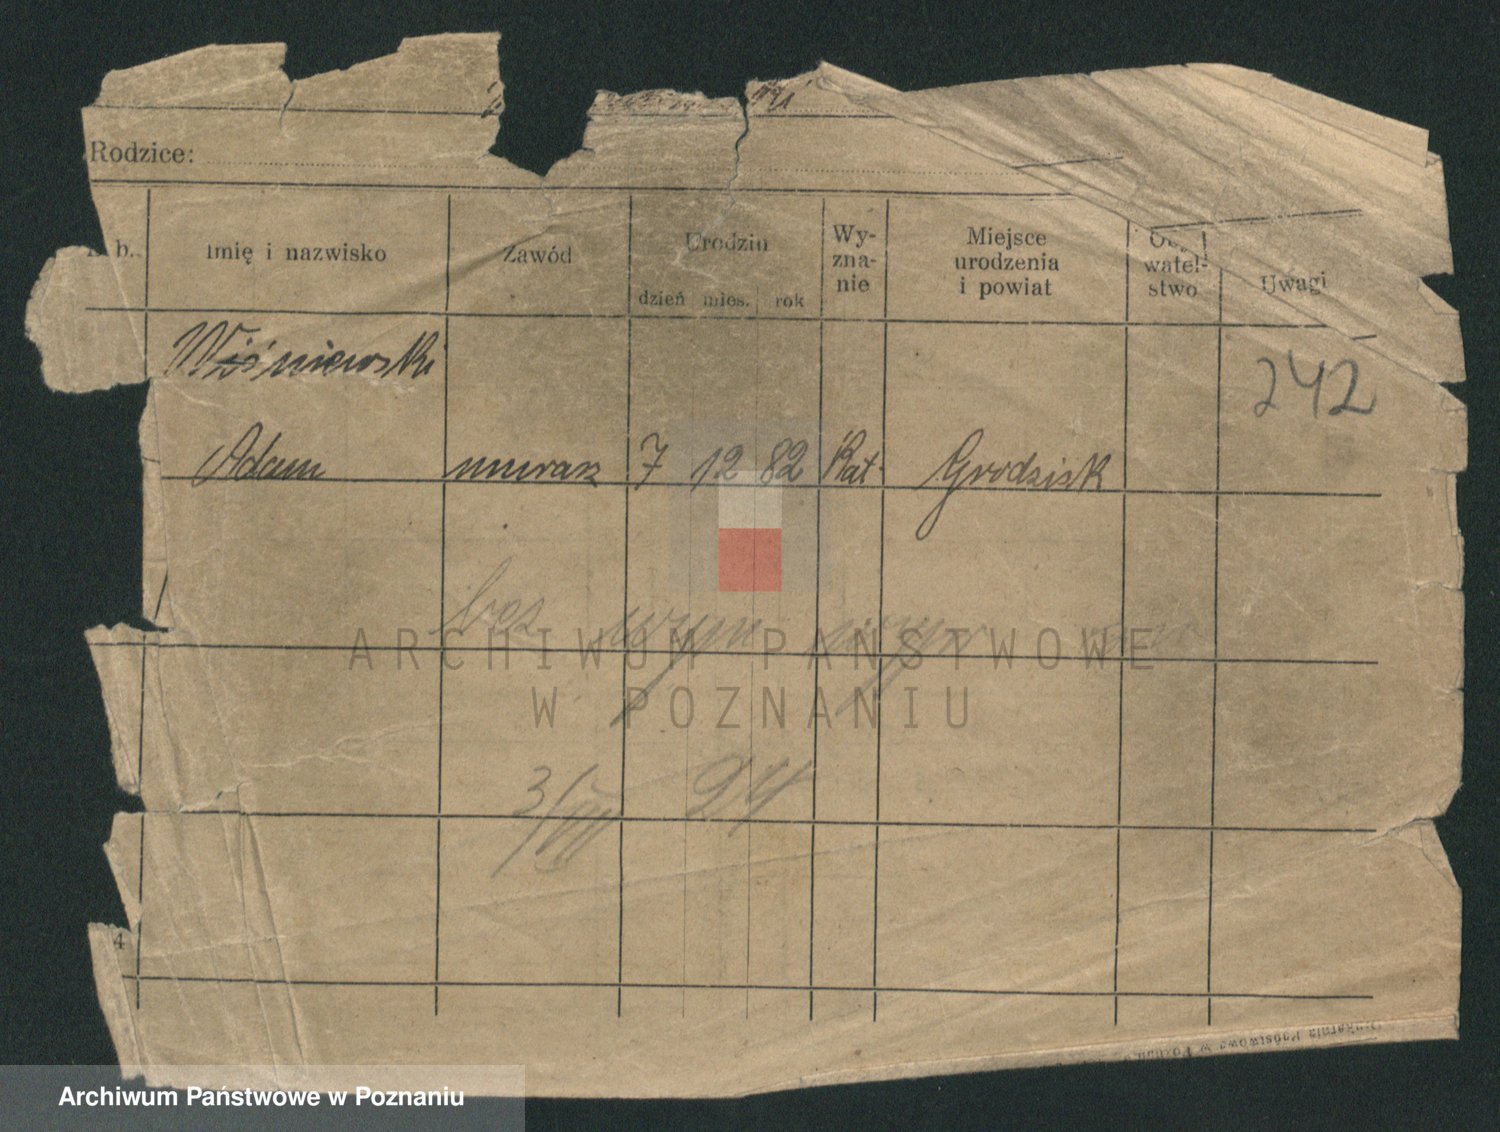 Rodzice:
b. Imię i nazwisko Zawód Urodzin Wy-zna-nie Miejsce urodzenia i powiat watel-stwo Uwagi
dzień mies. rok
Wiśniewski 242
Adam murarz 7 12 82 Kat. Grodzisk
bez wym
ARCHIWUM PAŃSTWOWE
W POZNANIU
3/VII 24
4
Drukarnia Państwowa w Poznaniu
Archiwum Państwowe w Poznaniu